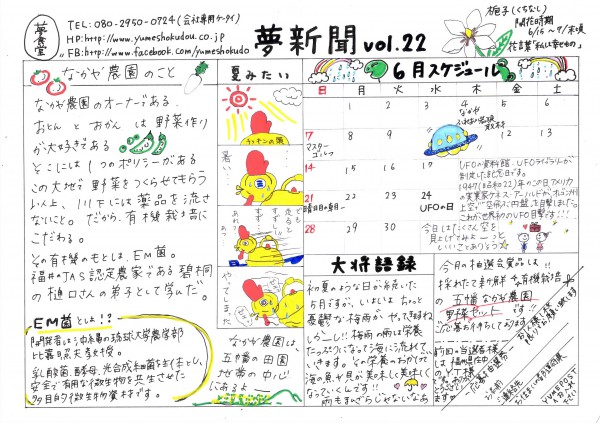 夢食堂
TEL:080-2950-0724(会社専用ケータイ)
HP:http://www.yumeshokudou.co.jp
FB:http://www.facebook.com/yumeshokudo
夢新聞 vol.22
梔子(くちなし)
開花時期
6/15〜7/末頃
花言葉「私は幸せもの」
なかや農園のこと
なかや農園のオーナーである
おとんとおかんは野菜作り
が大好きである
そこには1つのポリシーがある
この大地で野菜をつくらせてもらう
以上、川下には薬品を流さ
ないこと。だから、有機栽培に
こだわる。
その有機のもとは、EM菌。
福井JAS認定農家である碧桐
の樋口さんの弟子として学んだ。
EM菌とは!?
開発者は沖縄の琉球大学農学部
比嘉照夫名誉教授。
乳酸菌、酵母、光合成細菌を主体とし、
安全で有用な微生物を共生させた
多目的微生物資材です。
夏みたい
チッキンの頭
暑い…
走ると
すずしい!
あれ?
やってしまった
なかや農園は、
五幡の田園
地帯の中心
にあるよー
6月スケジュール
日 月 火 水 木 金 土
1 2 3 4 5 6
なかや
ふれあい完熟
取材
7 8 9 12 13
マスター
ゴルフ
14 15 16 17
21 22 23 24
UFOの日
28 29 30
UFOの資料館・UFOライブラリーが
制定した記念日です。
1947(昭和22)年のこの日アメリカ
の実業家ケネス・アーノルドがワシントン州
上空で空飛ぶ円盤を目撃しました。
これが世界初のUFO目撃です!!!
今日はたくさん空を
見上げてみよーっと
いいことありそう
大将語録
初夏のような日が続いた
5月ですが、いよいよちょっと
憂鬱な梅雨がやってきますね
しかーし!!梅雨の雨は栄養
たっぷりになって海に流れて
いきます。その栄養のおかげで
海の魚や貝が美味しく美味しく
なっていくんです!!
雨もまずざらじゃないなあ
今月の抽選会賞品は!!
採れたて新鮮な有機栽培の
五幡なかや農園
野菜セットです!!
ご応募お待ちしております
前回の当選者様
は福岡県在中
のY.T様
でした!!
おめでとう
ございます
応募抽選券
お名前
ご連絡先
YUMEPOST